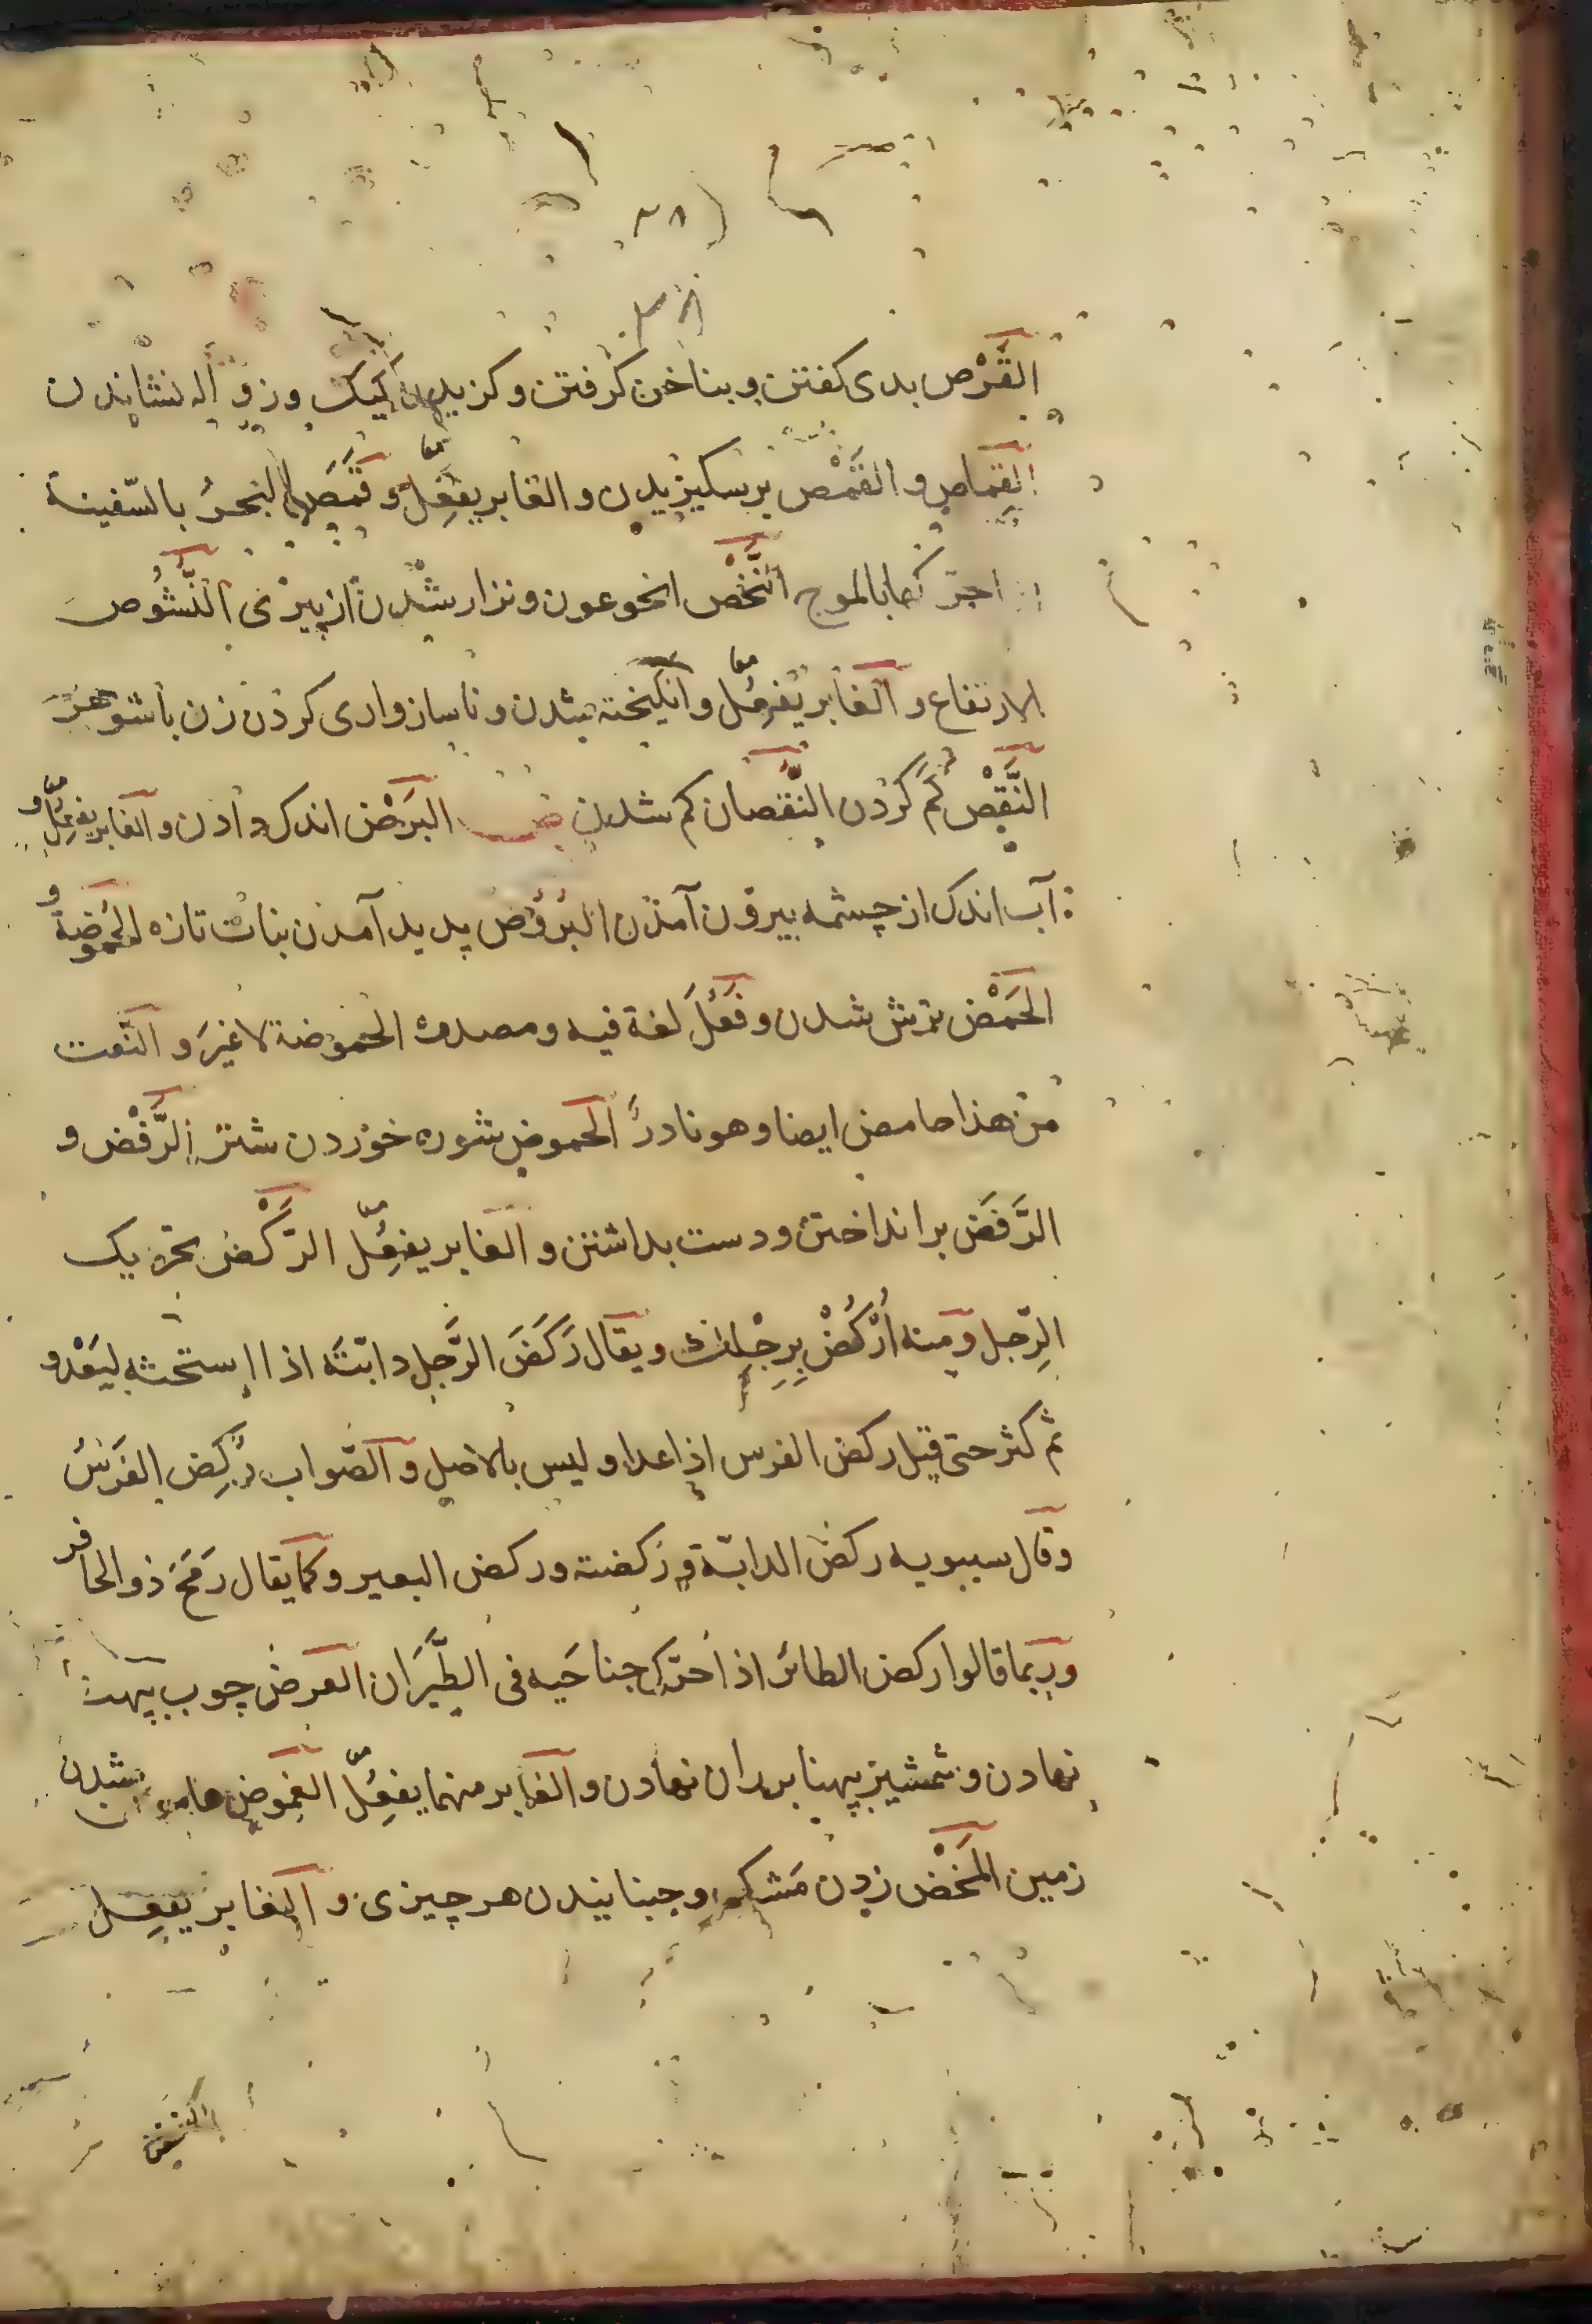 القَرْص بدی کفتن و بناخن کرفتن و کزیدن کیک وزو اله نشاندن
القِماص و القَمْص برسکیزیدن و الغابر یفعِل و قَمَصَ البحرُ بالسّفینة
اذا حرّکها بالموج النَّخْص انخوعون و نزار شدن از پیری النُّشُوص
الارتفاع و الغابر یفعُِل معا و انکیخته شدن و ناسازواری کردن زن با شوهر
النَّقْص کم کردن النُّقصان کم شدن ض البَرْض اندک دادن و الغابر یفعُِل معا و
آب اندک از چشمه بیرون آمدن البُرُوض پدید آمدن نبات تازه الحُموضة و
الحَمْض ترش شدن و فَعُلَ لغة فیه و مصدره الحموضة لا غیرَ و النّعت
من هذا حامض ایضا و هو نادرٌ الحموض شوره خوردن شتر الرَّفْض و
الرَّفَض برانداختن و دست بداشتن و الغابر یفعُِل معا الرَّکْض تحریک
الرِّجل و منه اُرْکُضْ بِرِجْلِكَ و یقال رَکَضَ الرَّجل دابّتَه اذا استحثه لیَعْدو
ثم کثر حتی قیل رکض الفرس اذا عدا و لیس بالاصل و الصّواب رُکِض الفَرَسُ
وقال سیبویه رکض الدابّة و رکضته و رکض البعیر و کما یقال رَمَحَ ذو الحافر
وربما قالوا رکض الطائر اذا حرّک جناحَیه فی الطَّیَران العرض چوب بپهنا
نهادن و شمشیر پهنا بر ران نهادن و الغابر منهما یفعُِل معا الغموض شدن
زمین المَخْض زدن مَشک و جنبانیدن هر چیزی و الغابر یفعِل